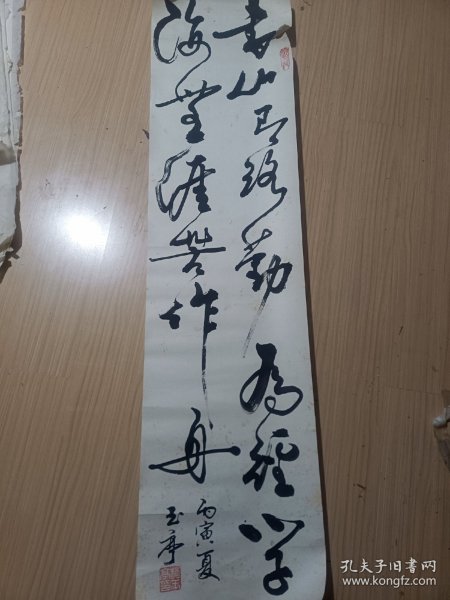 书山有路勤为径学
海无涯苦作舟
丙寅夏
玉亭
孔夫子旧书网